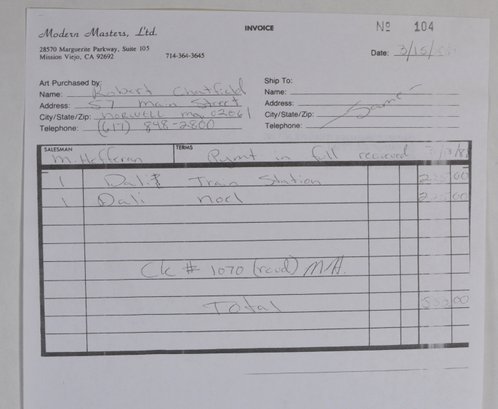 Modern Masters, Ltd.
INVOICE
Nº 104
28570 Marguerite Parkway, Suite 105
Mission Viejo, CA 92692
714-364-3645
Date: 3/15/
Art Purchased by:
Name: Robert Chatfield
Address: 57 Main Street
City/State/Zip: Norwell Ma 02061
Telephone: (617) 848-2800
Ship To:
Name:
Address: Same
City/State/Zip:
Telephone:
SALESMAN M. Hefferan
TERMS Paymt in full recieved
1 Dali Train Station
1 Dali Noel
Ck # 1070 (recvd) M.H.
Total